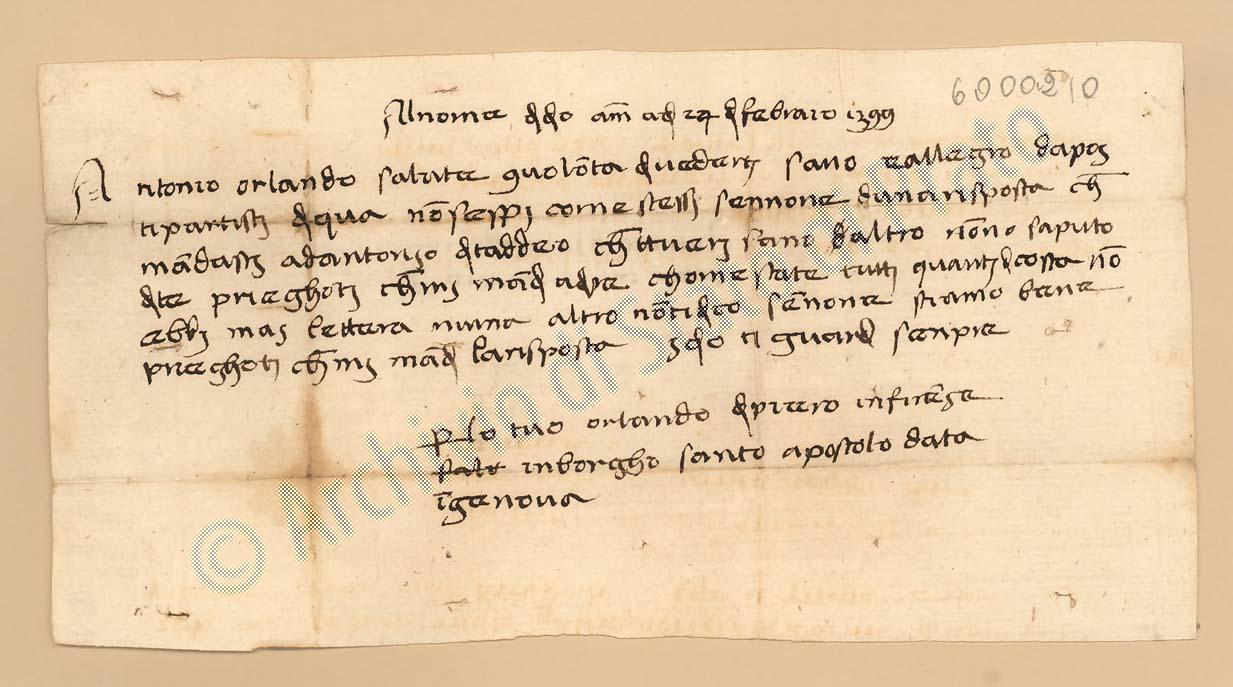 6000210
Al nome d dio am ad 24 d febraio 1399
Antonio orlando salute chon volonta d vederti sano e allegro dapoi
ti partisti d qua nō seppi come stessi se nnone duna risposta ch̄
mādasti ad antonio d taddeo ch̄ ttu eri sano d altro nōno saputo
d te prieghoti ch̄ mi mādi a dire chome state tutti quanti d costa nō
ebbi mai lettera niuna altro nō ti dico se nnone stiamo bene
prieghoti ch̄ mi mādi la risposta idio ti guardi senpre
per lo tuo orlando d piero in firēze
in borgho santo apostolo data
ī genova
© Archivio di Stato di Prato